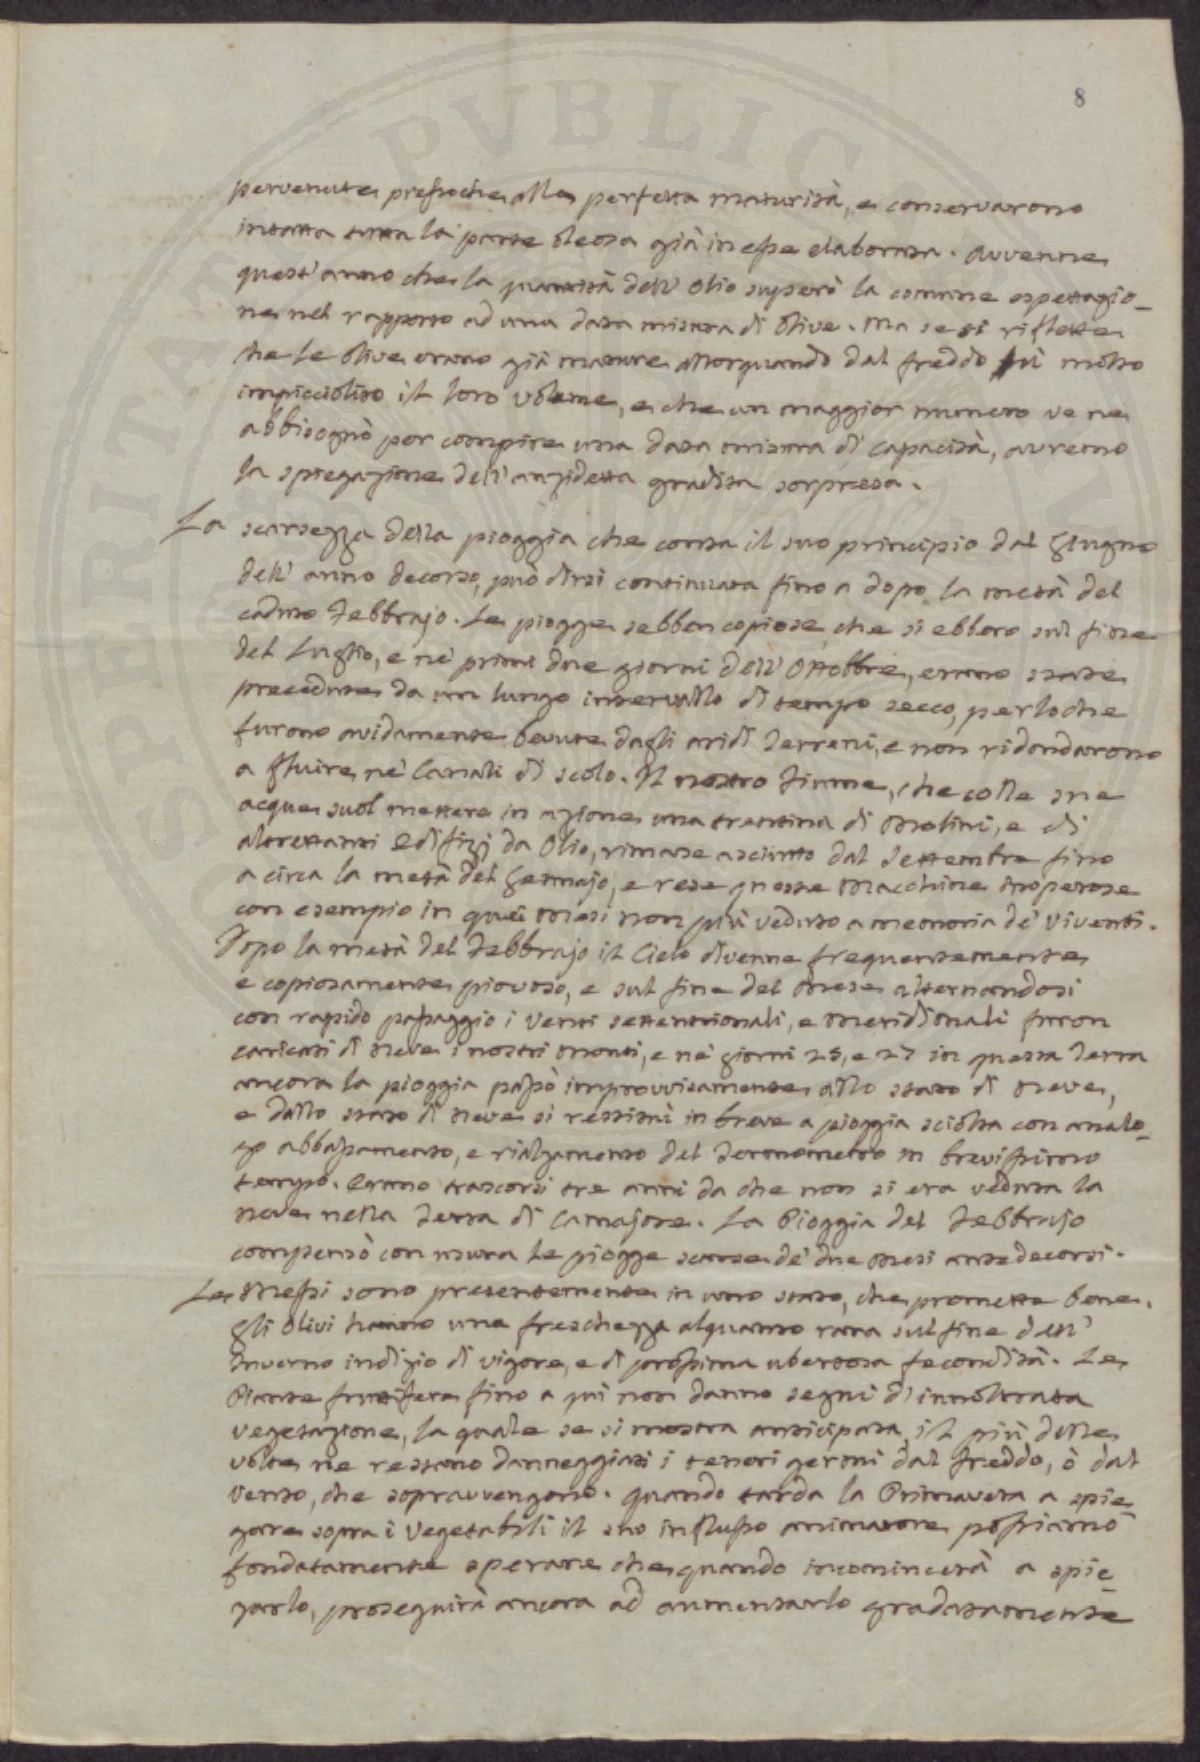 8
pervenute pressoche alla perfetta maturità, e conservarono
intatta tutta la parte oleosa già in esse elaborata. Avvenne
quest'anno che la quantità dell'Olio superò la comune espettazio-
ne nel rapporto ad una data misura di Olive. Ma se si riflette
che le Olive erano già mature allorquando dal freddo fù molto
impicciolito il loro volume, e che un maggior numero ve ne
abbisognò per compire una data misura di capacità, avremo
la spiegazione dell'anzidetta gradita sorpresa.
La scarsezza della pioggia che conta il suo principio dal Giugno
dell'anno decorso, può dirsi continuata fino a dopo la metà del
caduto Febbrajo. Le piogge sebben copiose che si ebbero sul fine
del Luglio, e ne' primi due giorni dell'Ottobre, erano state
precedute da un lungo intervallo di tempo secco, perloche
furono avidamente bevute dagli aridi Terreni, e non ridondarono
a fluire ne' Canali di scolo. Il nostro Fiume, che colle sue
acque suol mettere in azione una trentina di Molini, e di
altrettanti Edifizj da Olio, rimase asciutto dal Settembre fino
a circa la metà del Gennajo, e rese queste Macchine inoperose
con esempio in quei Mesi non più veduto a memoria de' Viventi.
Dopo la metà del Febbrajo il Cielo divenne frequentemente
e copiosamente piovoso, e sul fine del Mese alternandosi
con rapido passaggio i Venti settentrionali, e Meridionali furon
caricati di Neve i nostri Monti, e ne' giorni 25, e 27 in questa Terra
ancora la pioggia passò improvvisamente allo stato di Neve,
e dallo stato di Neve si restituì in breve a pioggia sciolta con analo-
go abbassamento, e rialzamento del Termometro in brevissimo
tempo. Erano trascorsi tre anni da che non si era veduta la
Neve nella Terra di Camajore. La Pioggia del Febbrajo
compensò con usura le piogge scarse de' due Mesi antedecorsi.
Le Messi sono presentemente in uno stato, che promette bene.
gli Olivi hanno una freschezza alquanto rara sul fine dell'
Inverno indizio di vigore, e di prossima ubertosa fecondità. Le
Piante fruttifere fino a qui non danno segni di innoltrata
vegetazione, la quale se si mostra anticipata, il più delle
volte ne restano danneggiati i teneri germi dal freddo, ò dal
vento, che sopravvengono. Quando tarda la Primavera a spie
gare sopra i Vegetabili il suo influsso animatore possiamo
fondatamente sperare che quando incomincerà a spie-
garlo, proseguirà ancora ad aumentarlo gradatamente